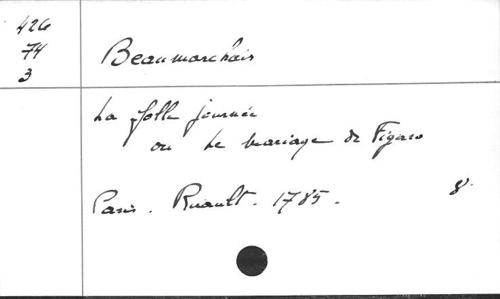 426
74
3
Beaumarchais
La folle journée
ou Le mariage de Figaro
Paris. Ruault. 1785.
8.